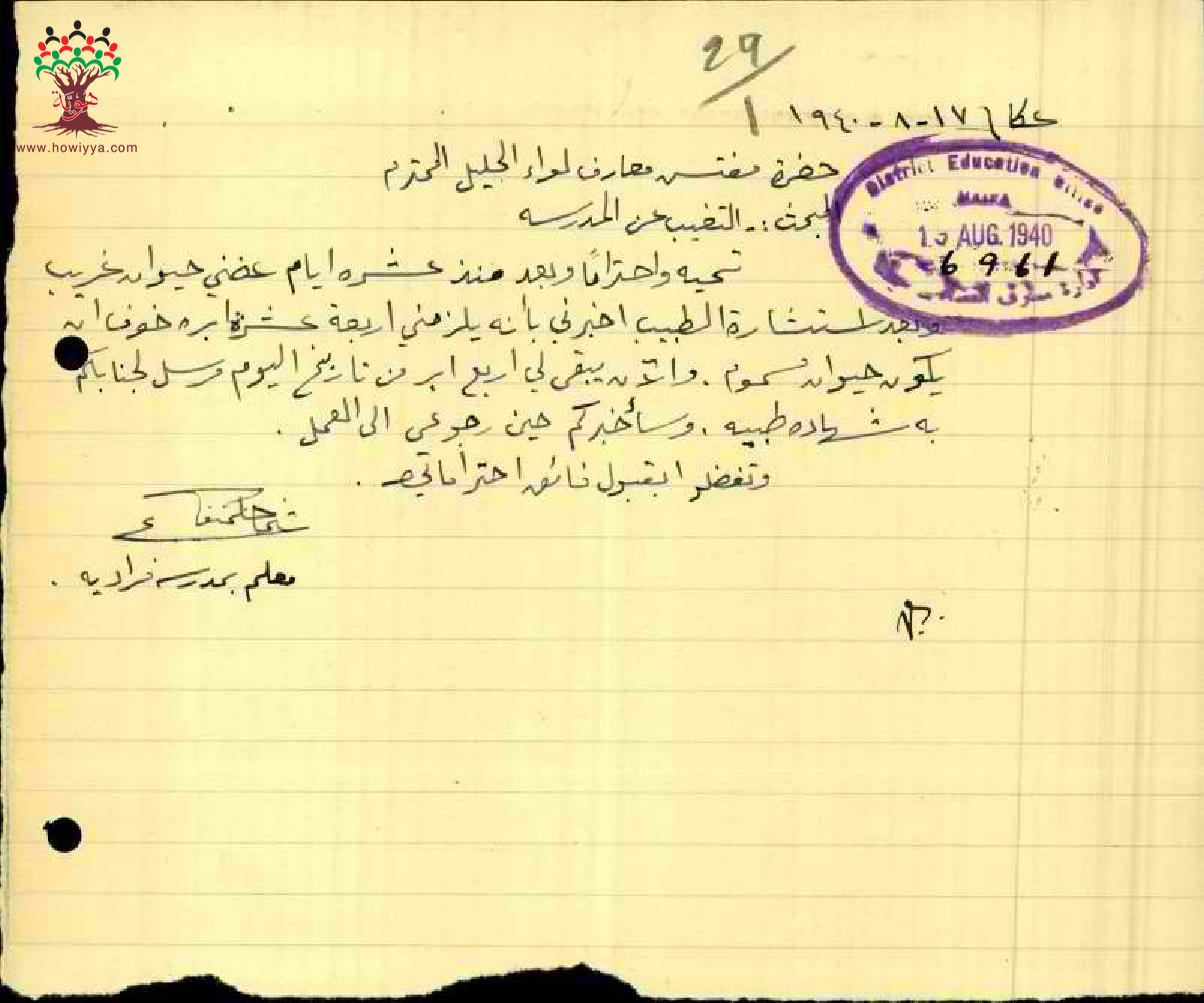 هوية
www.howiyya.com
29
1
عكا ١٧-٨-١٩٤٠
حضرة مفتش معارف لواء الجليل المحترم
المبحث :- التغيب عن المدرسه
District Education Office
HAIFA
AUG. 1940
6961
تحيه واحتراماً وبعد منذ عشره ايام عضني حيوان غريب
وبعد استشارة الطبيب اخبرني بأنه يلزمني اربعة عشرة ابره خوف ان
يكون حيوان مسموم . والآن يبقى لي اربع ابر من تاريخ اليوم مرسل لجنابكم
به شهاده طبيه . وسأخبركم حين رجوعي الى العمل .
وتفضلوا بقبول فائق احتراماتي .
معلم بمدرسة فراديه .